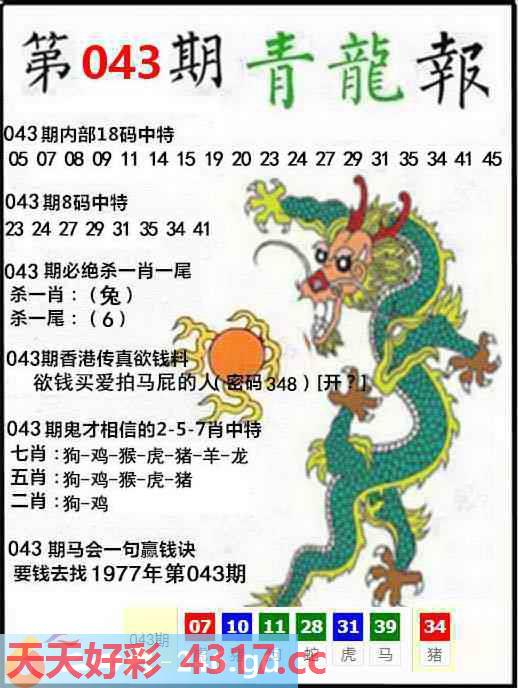 第043期 青龍報
043期内部18码中特
05 07 08 09 11 14 15 19 20 23 24 27 29 31 35 34 41 45
043期8码中特
23 24 27 29 31 35 34 41
043 期必绝杀一肖一尾
杀一肖：（兔）
杀一尾：（6）
043期香港传真欲钱料
欲钱买爱拍马屁的人(密码348)[开？]
043期鬼才相信的2-5-7肖中特
七肖：狗-鸡-猴-虎-猪-羊-龙
五肖：狗-鸡-猴-虎-猪
二肖：狗-鸡
043 期马会一句赢钱诀
要钱去找1977年第043期
07 10 11 28 31 39 34
043期 蛇 虎 马 猪
天天好彩 4317.cc